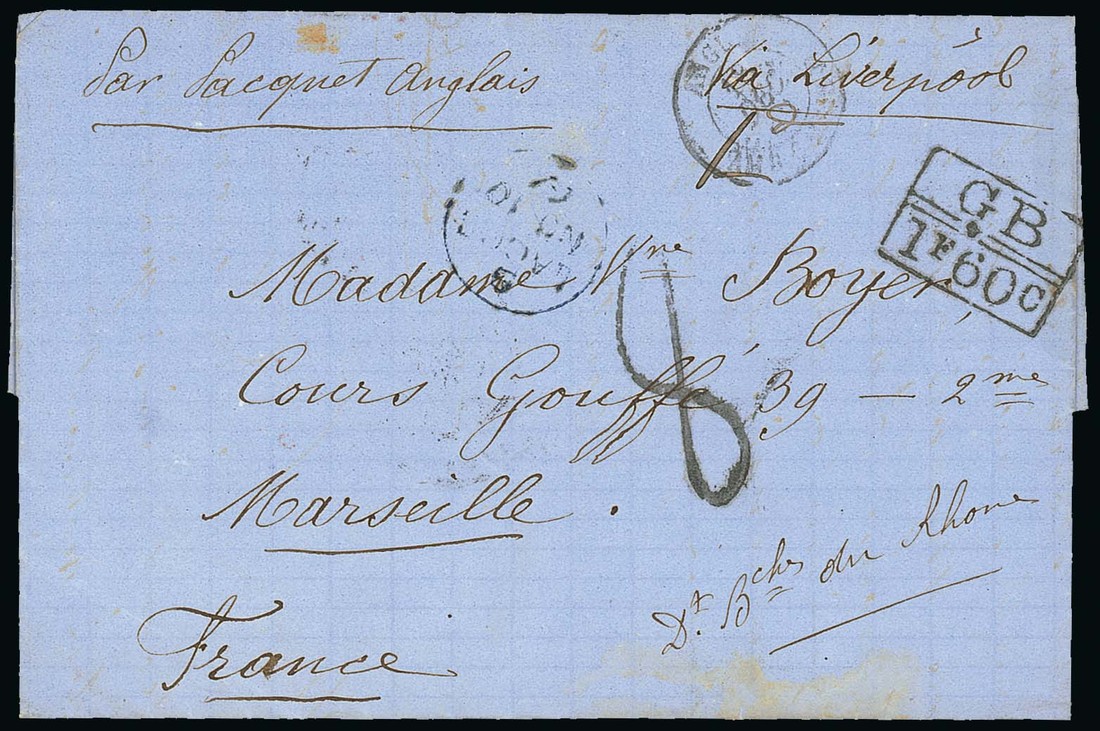 Par Pacquet Anglais
Via Liverpool
GB
1F60c
Madame Vve Boyer
8
Cours Gouffé 39 — 2me
Marseille.
Dt. Bches du Rhone
France